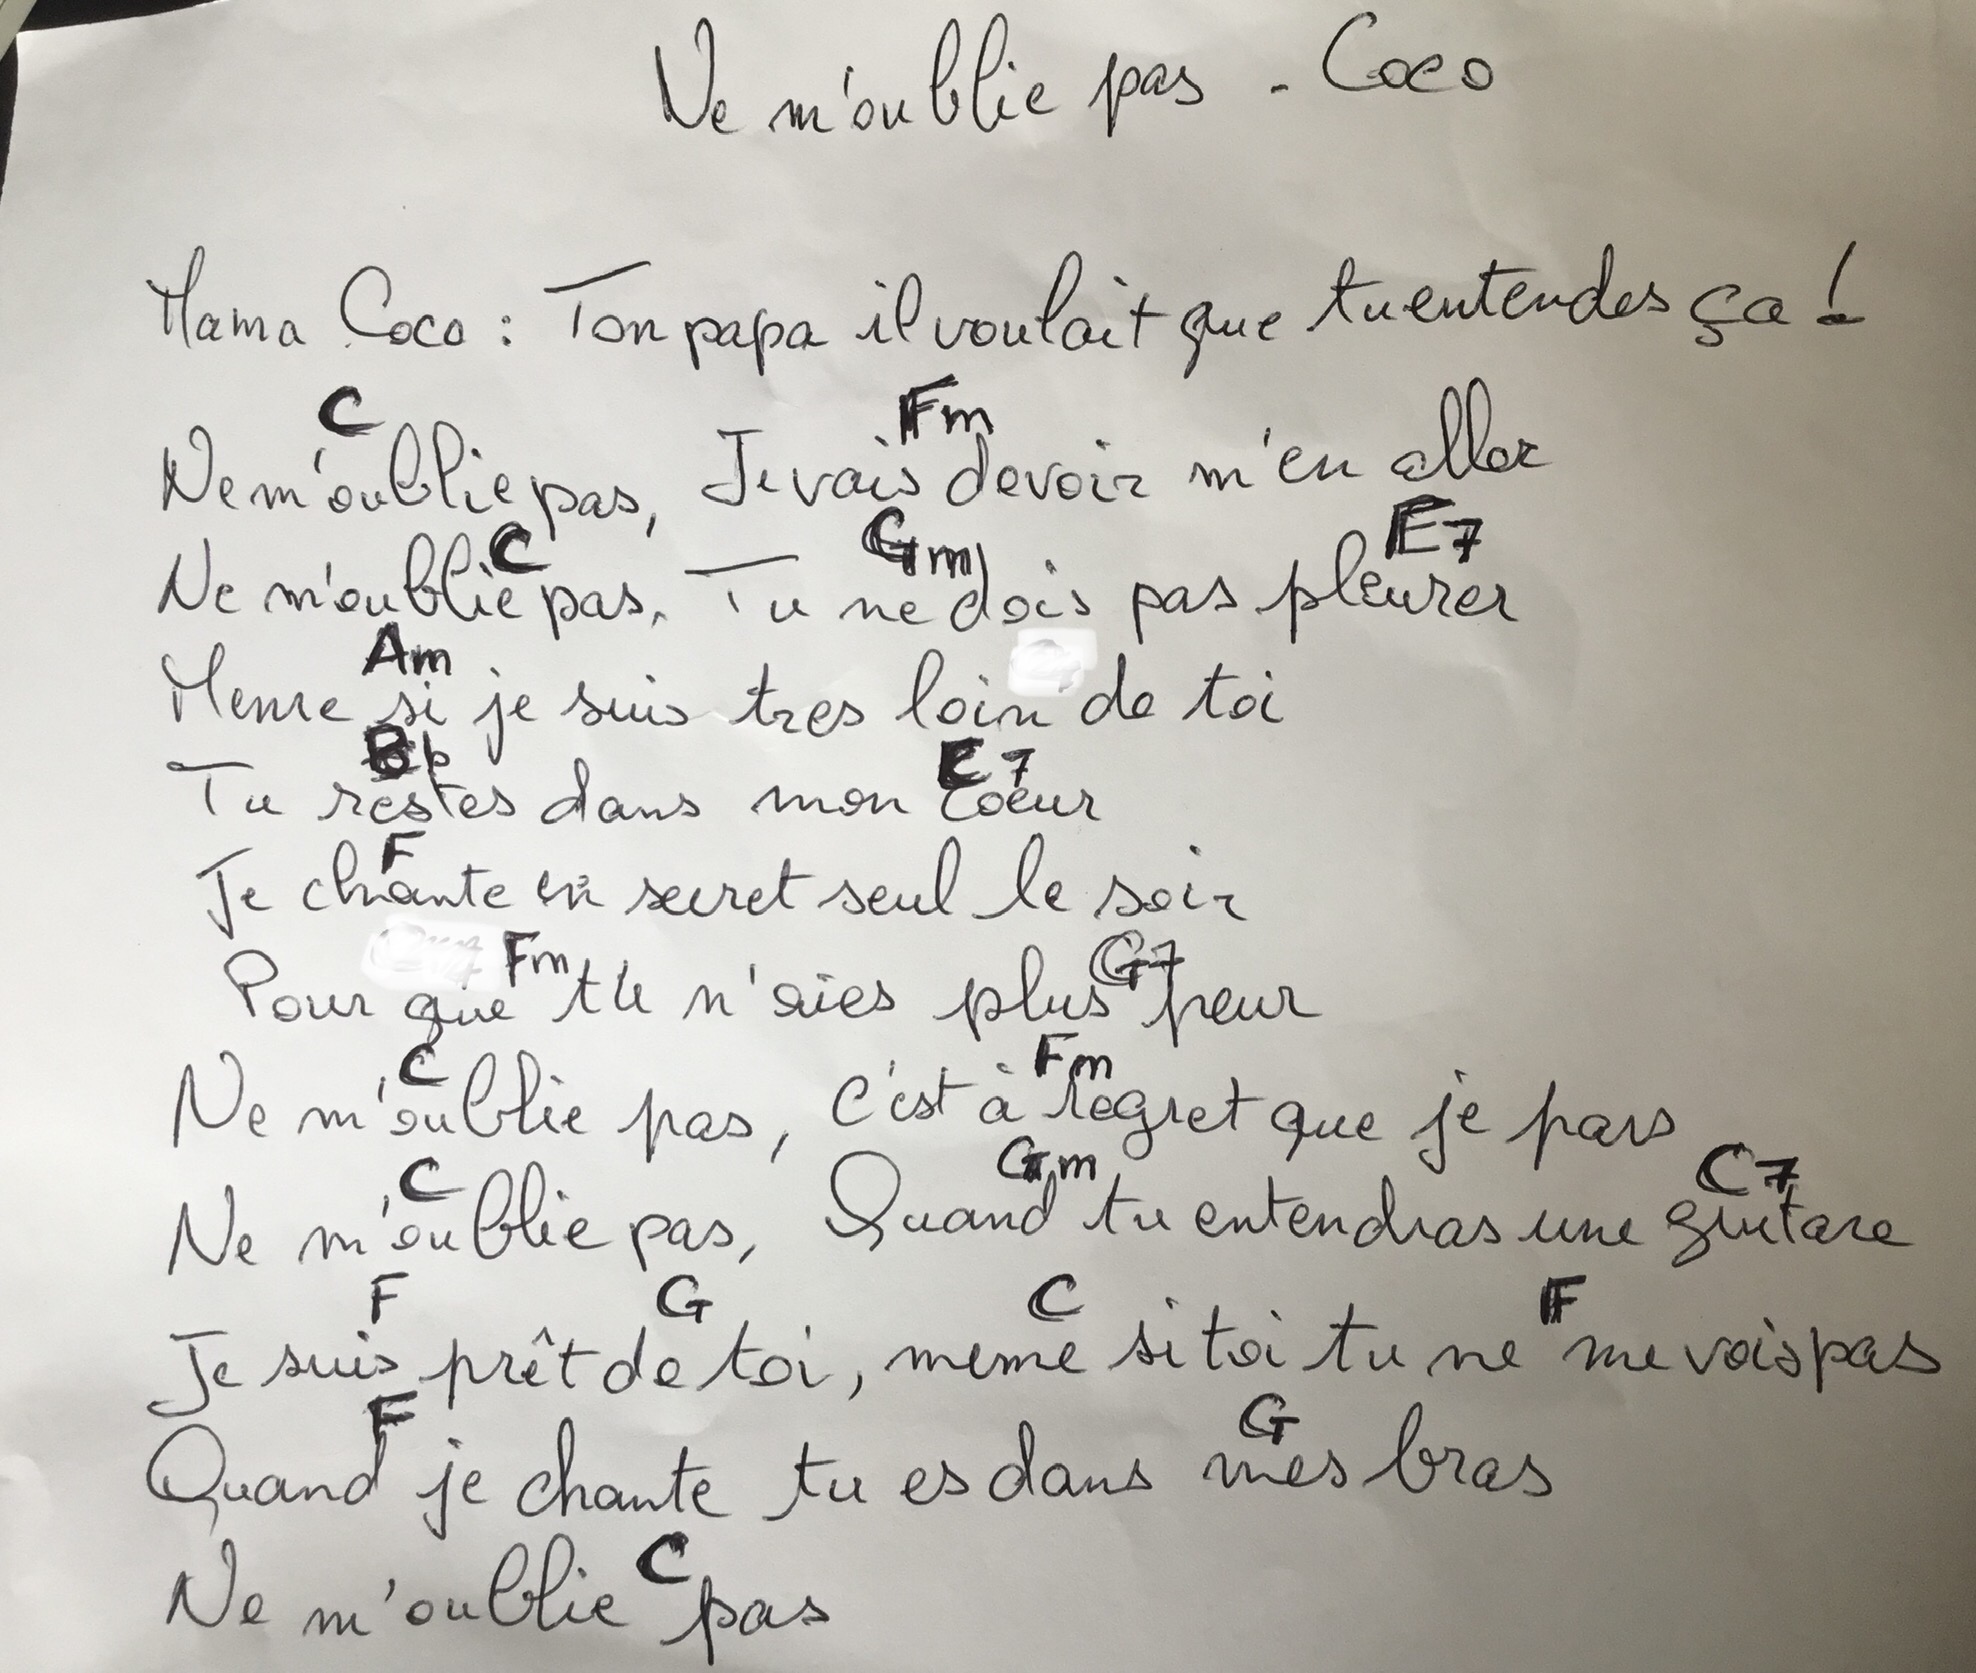 Ne m'oublie pas - Coco
Mama Coco : Ton papa il voulait que tu entendes ça !
C Fm
Ne m'oublie pas, Je vais devoir m'en aller
C Gm E7
Ne m'oublie pas. Tu ne dois pas pleurer
Am
Meme si je suis tres loin de toi
Bb E7
Tu restes dans mon coeur
F
Je chante en secret seul le soir
Fm G7
Pour que tu n'aies plus peur
C Fm
Ne m'oublie pas, c'est à regret que je pars
C Gm C7
Ne m'oublie pas, Quand tu entendras une guitare
F G C F
Je suis prêt de toi, meme si toi tu ne me vois pas
F G
Quand je chante tu es dans mes bras
C
Ne m'oublie pas